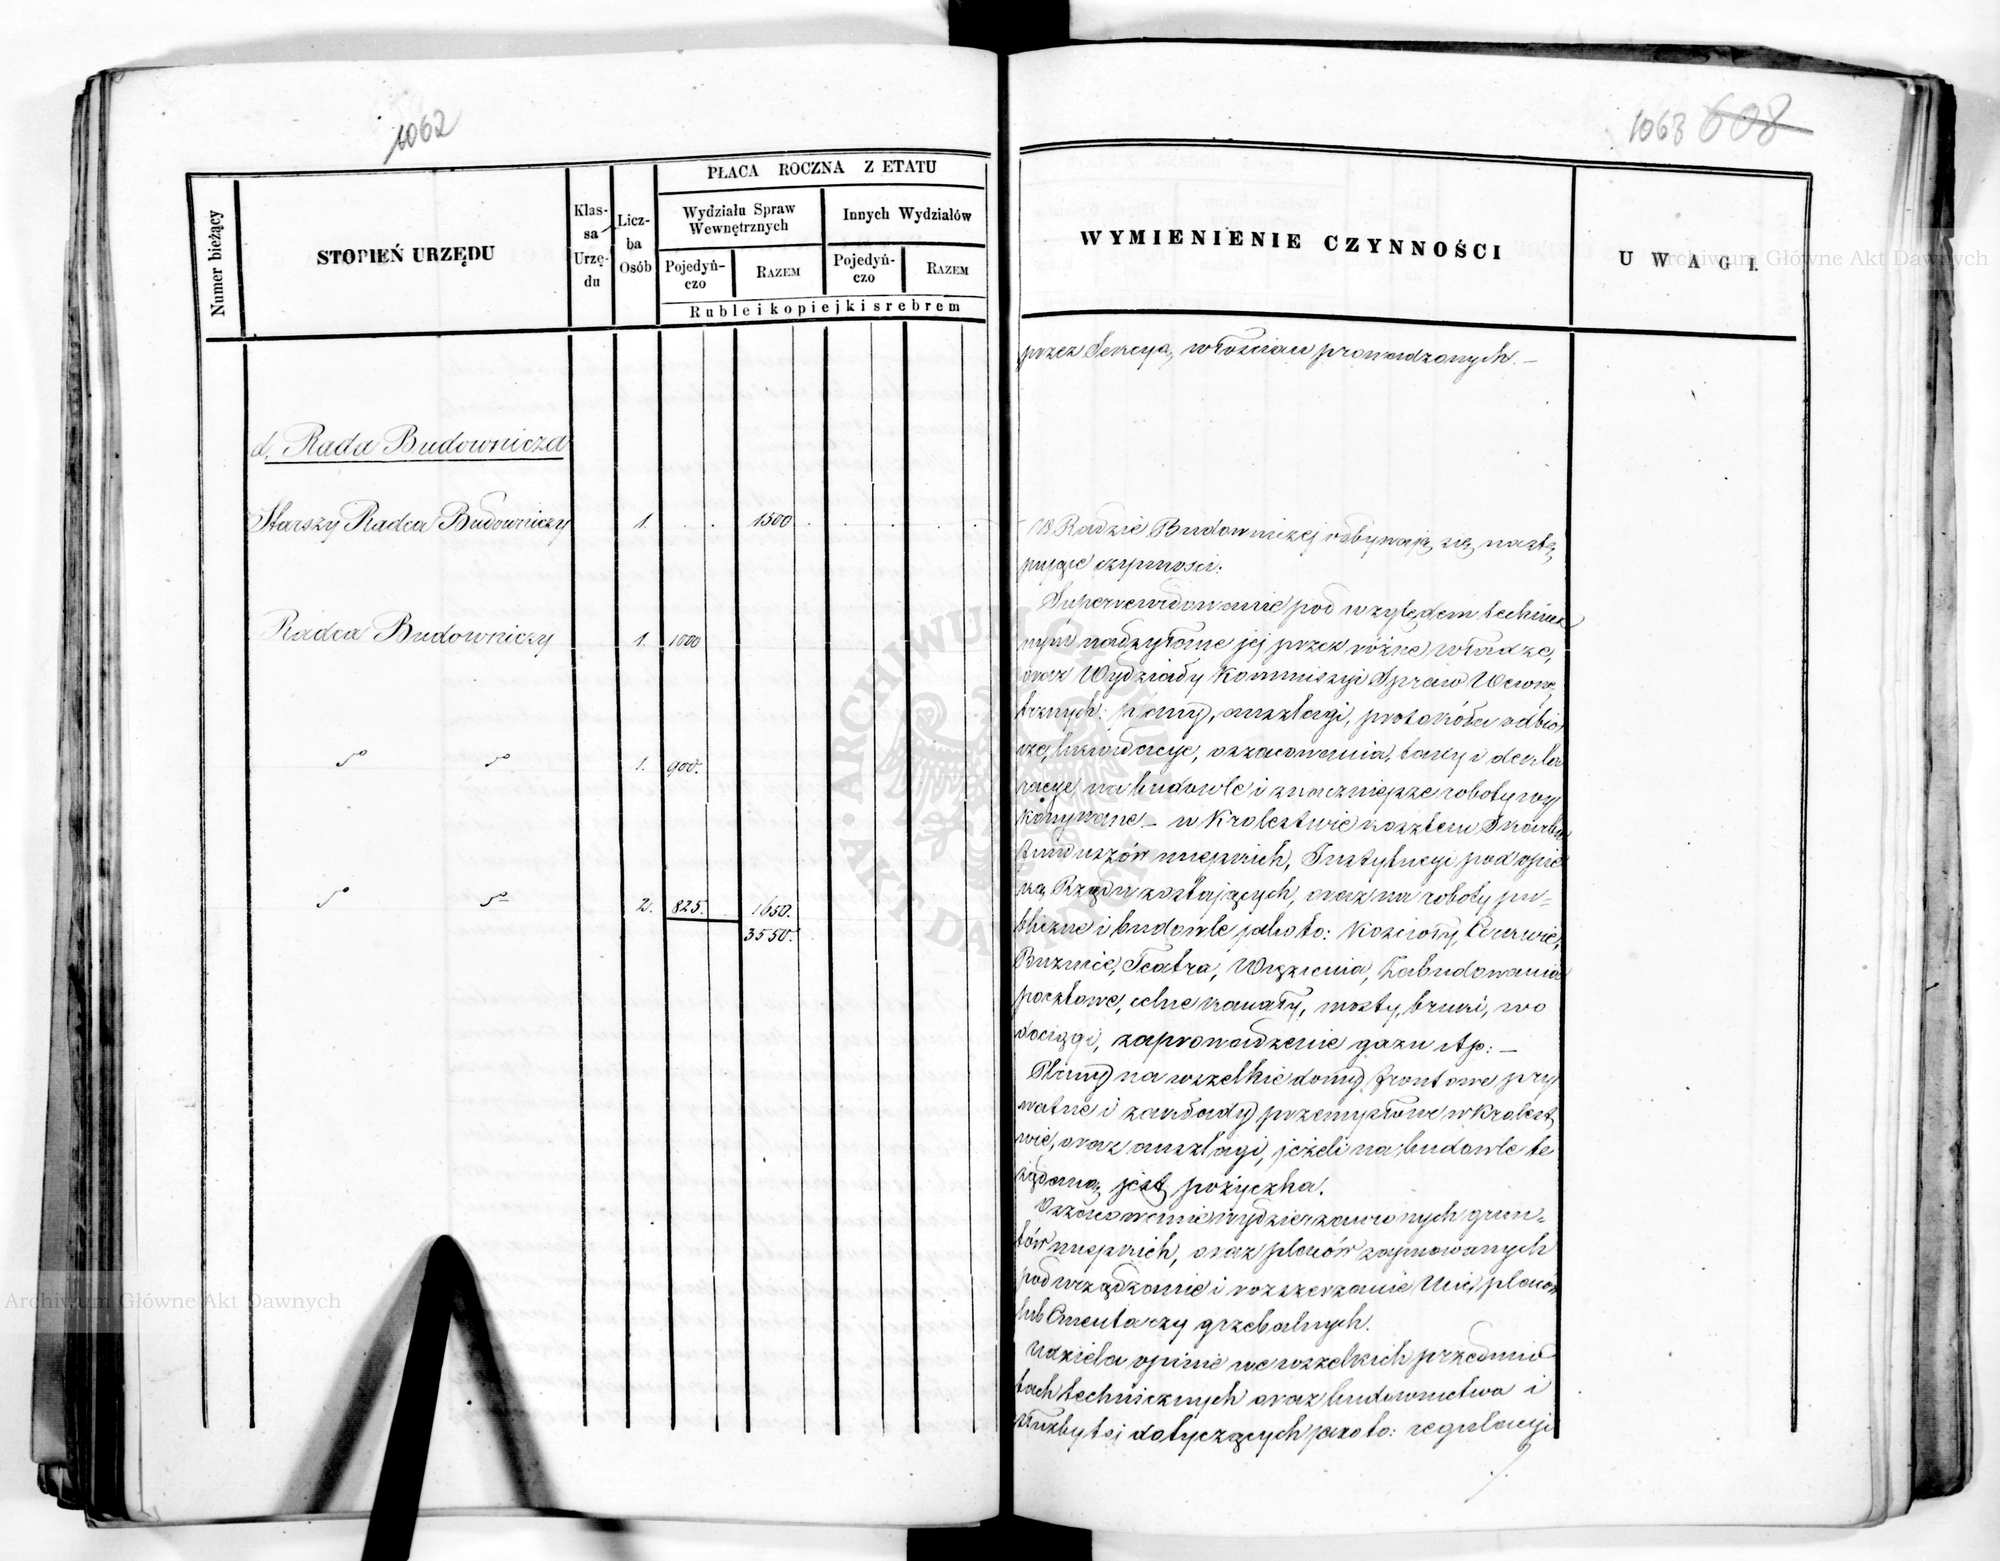 1062
Numer bieżący
STOPIEŃ URZĘDU
Klas-
sa
Urzę-
du
Licz-
ba
Osób
PŁACA ROCZNA Z ETATU
Wydziału Spraw
Wewnętrznych
Innych Wydziałów
Pojedyń-
czo
RAZEM
Pojedyń-
czo
RAZEM
Ruble i kopiejki srebrem
d, Rada Budownicza
Starszy Radca Budowniczy 1. . . 1500 . . . . .
Radca Budowniczy 1. 1000
do do 1. 900.
do do 2. 825. 1650.
3550.
1063 608
WYMIENIENIE CZYNNOŚCI
UWAGI.
przez Sekcyą włościan prowadzonych. —
W Radzie Budowniczej odbywają się nastę,
pujące czynności:
Superrewidowanie pod względem technicz,
nym nadsyłane jej przez różne władze,
oraz Wydziały Kommissyi Spraw Wewnę,
trznych: plany, anszlagi, protokóła odbio,
rze, likwidacye, oszacowania, taxy i dekla
racye na budowle i znaczniejsze roboty wy
konywane — w Królestwie kosztem Skarbu
funduszów miejskich, Instytucyi pod opie
ką Rządu zostających, oraz na roboty pu=
bliczne i budowle jako to: Kościoły, Cerkwie,
Buznice, Teatra, Więzienia, Zabudowania
pocztowe, celne kanały, mosty, bruki, wo
dociągi, zaprowadzenie gazu itp: —
Plany na wszelkie domy frontowe pry
watne i zakłady przemysłowe w Królest,
wie, oraz anszlagi, jeżeli na budowle te
żądaną jest pożyczka.
Oszacowanie wydzierżawionych grun=
tów miejskich, oraz placów zajmowanych
pod urządzenie i rozszerzanie Ulic, placów
lub Cmentarzy grzebalnych.
Udziela opinie we wszelkich przedmio
tach technicznych oraz budownictwa i
służby tej dotyczących jako to: regulacyi
Archiwum Główne Akt Dawnych
Archiwum Główne Akt Dawnych
ARCHIWUM GŁÓWNE AKT DAWNYCH